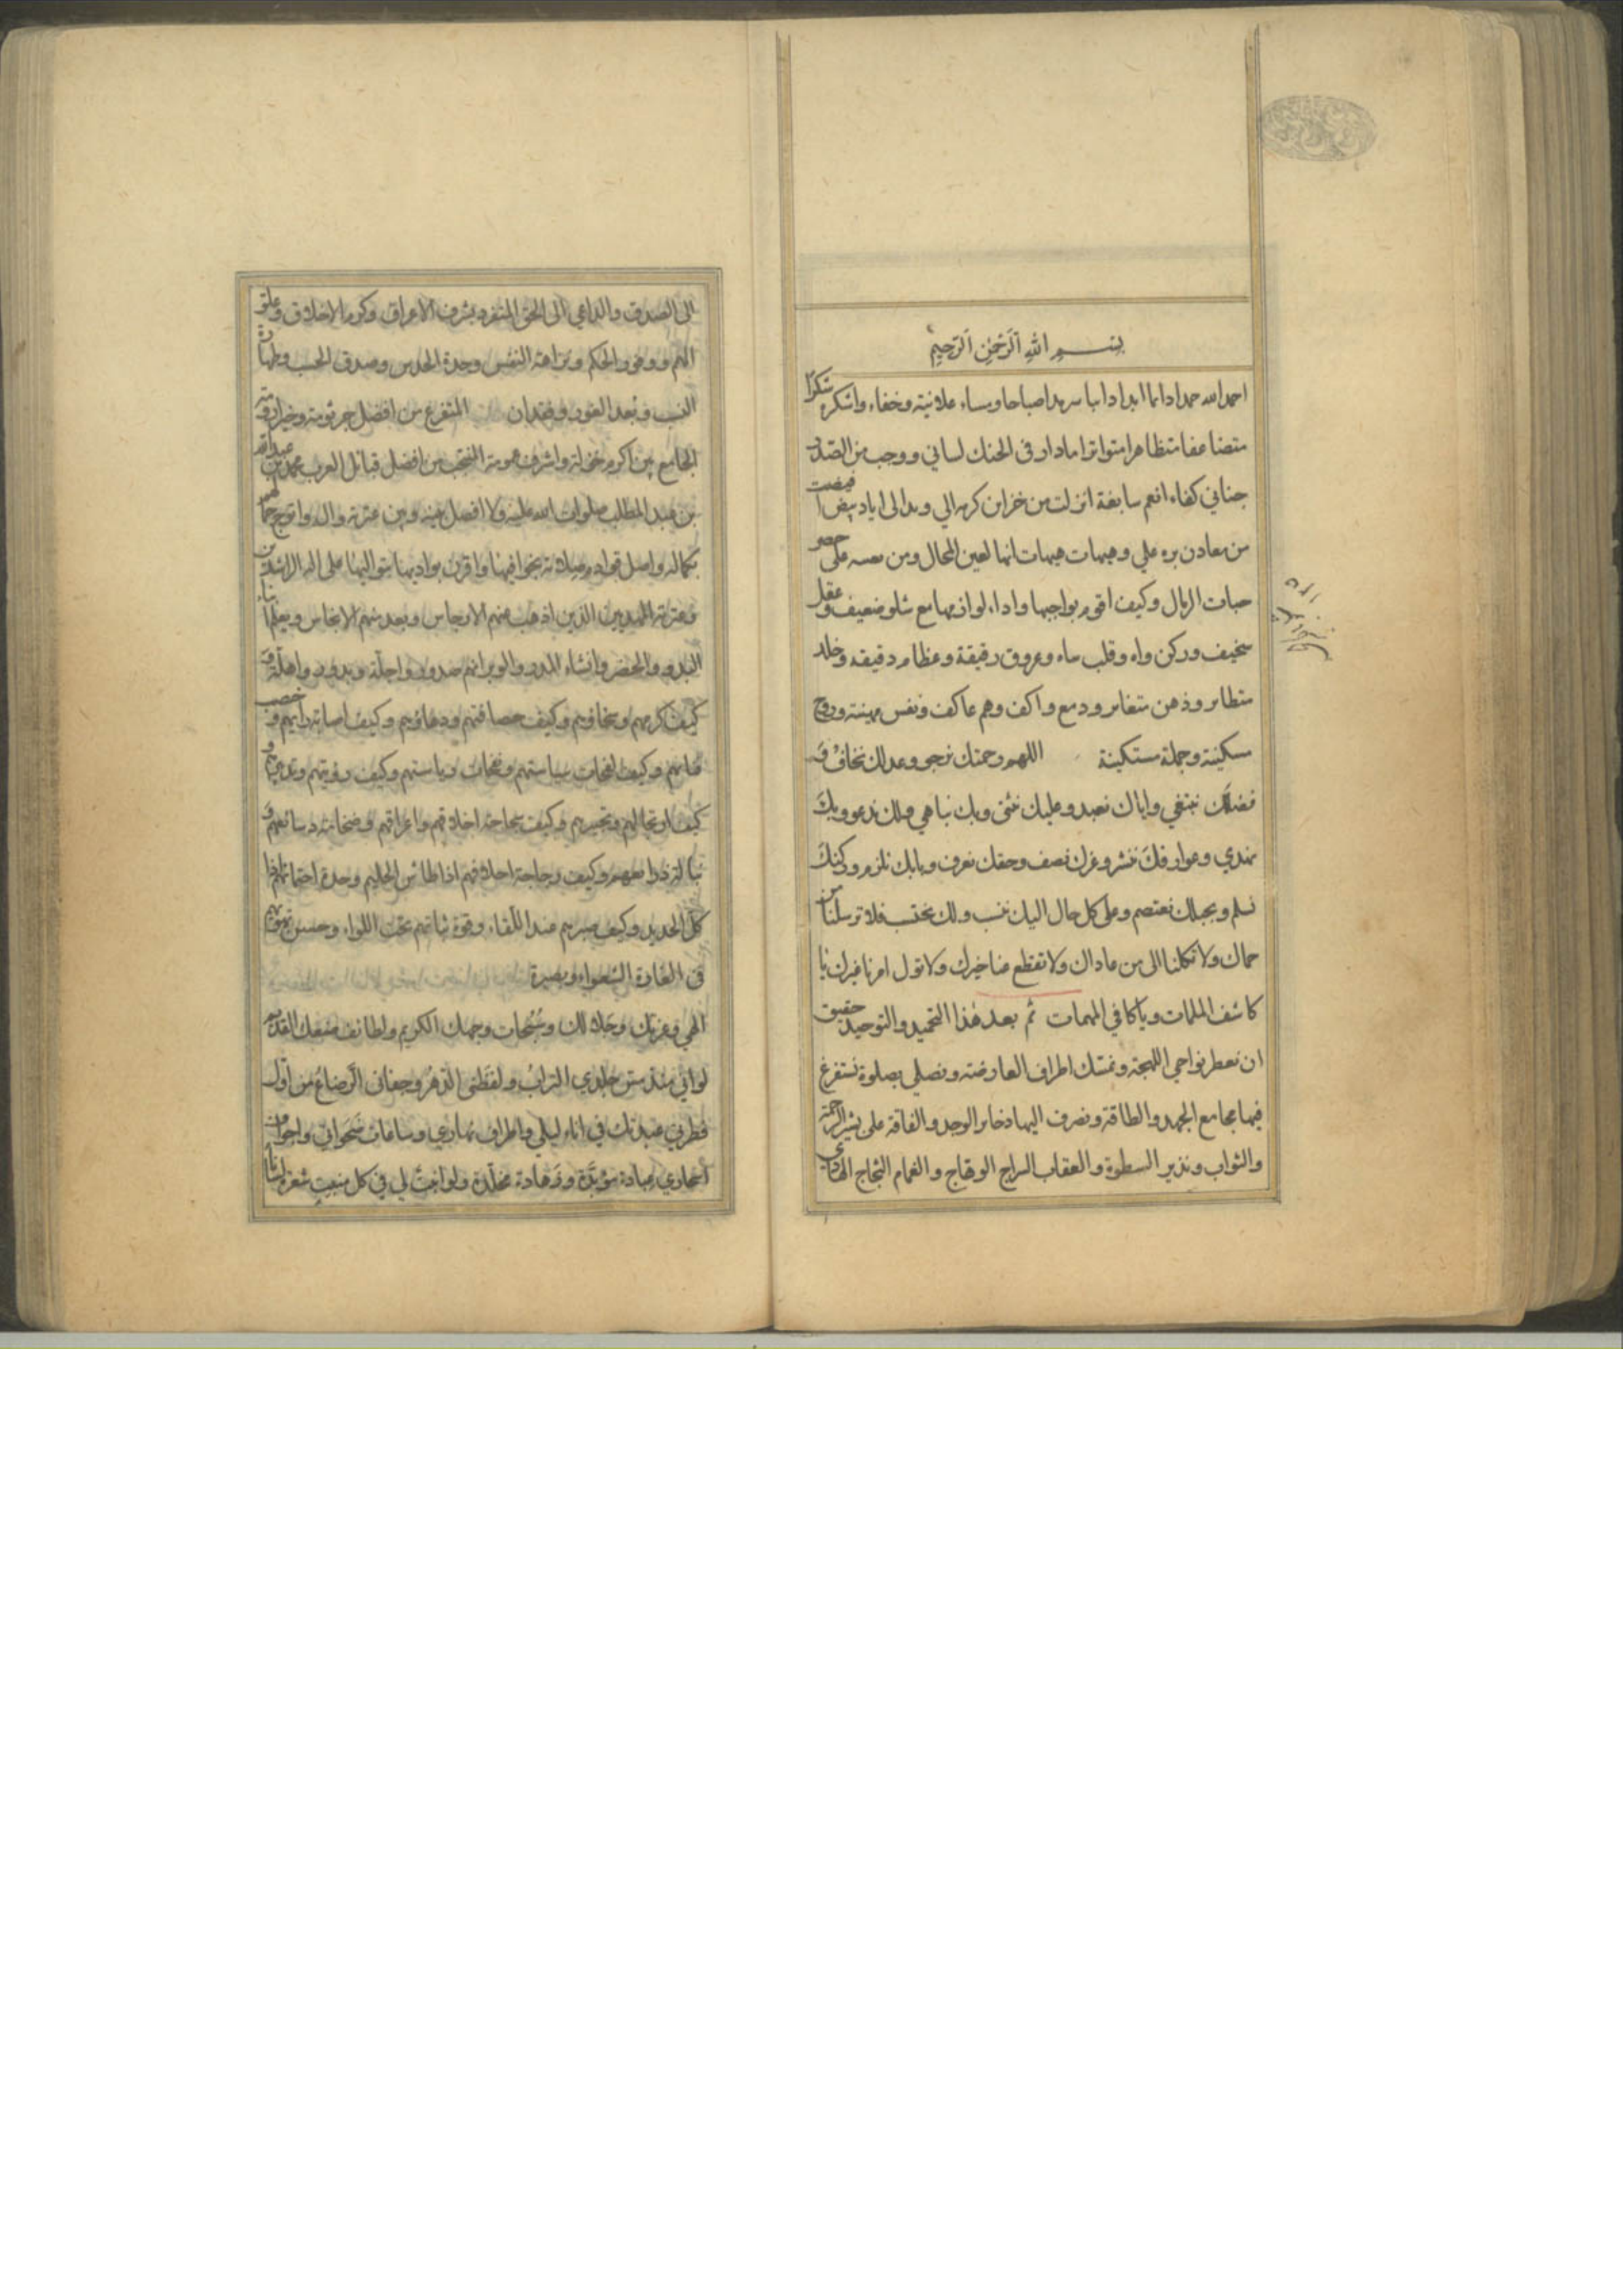 بسم الله الرحمن الرحيم
احمد الله حمدا دائما ابدا دائبا سرمدا صباحا ومساء علانية وخفاء واشكره شكرا
متضاعفا متظاهرا متواترا مادار فى الحنك لسانى ووجب من الصدر
جناني كفاء انعم سابغة انزلت من خزاين كرمه الي وبدا لى اياد بيض افيضت
من معادن بره علي وهيهات هيهات انها لعين المحال ومن نفسه على حصر
حبات الرمال وكيف اقوم بواجبها واداء لوازمها مع شلو ضعيف وعقل
سخيف وركن واه وقلب ساه وعروق رقيقة وعظام دقيقه وخلد
متطاير وذهن متغاير ودمع واكف وهم عاكف ونفس مهينة وروح
مسكينة وجملة مستكينة اللهم رحمتك نرجى وعدلك نخاف و
فضلك نبتغي واياك نعبد وعليك نثنى وبك نباهي ولك ندعو وبك
نهتدي وعوارفك ننشر وعزك نصف وحقك نعرف وبابك نلزم وركنك
نسلم وبحبلك نعتصم وعلى كل حال اليك ننسب ولك نحتسب فلا ترسلنا من
حماك ولا تكلنا الى من عاداك ولا تقطع عنا خيرك ولا تول امرنا غيرك يا
كاشف الملمات ويا كافي المهمات ثم بعد هذا التحميد والتوحيد حقيق
ان نعطر نواحي اللهجة ونمسك اطراف العارضة ونصلى بصلوة نستفرغ
فيها مجامع الجهد والطاقة ونصرف اليها ذخاير الوجد والفاقة على بشير الرحمة
والثواب ونذير السطوة والعقاب السراج الوهاج والغمام الثجاج الهادى
الى الصدق والداعي الى الحق المتفرد بشرف الاعراق وكرم الاخلاق وعلو
الهمم ووفور الحكم ونزاهة النفس وحدة الحدس وصدق الحسب وطهارة
النسب وبعد الغور وفقدان المتفرع من افضل جرثومة وخير ارومة
الجامع بين اكرم خؤلة واشرف عمومة المنتخب من افضل قبائل العرب محمد بن عبدالله
بن عبد المطلب صلوات الله عليه ولا افصل بينه وبين عترته واله واتوج
بكماله واصل قوادم صلاته بخوافيها واقرن بواديها بتواليها على اله الراشدين
وعترته المهديين الذين اذهب عنهم الارجاس وبعد منهم الانجاس ويعلم ابناء
البدو والحضر وانشاء المدر والوبر انهم صدور واجلة وبدور واهلة و
كيف كرمهم وسخاؤهم وكيف حصافتهم ودهاؤهم وكيف اصابة رأيهم و خصب
فنائهم وكيف لفحات سياستهم ونفحات رياستهم وكيف
كيف ارتجالهم وتحبيرهم وكيف سجاحة اخلاقهم واعراقهم وضخامة دسائعهم و
وكيف رجاحة احلامهم اذا طاش الحليم وحدة اذا
كل الحديد وكيف صبرهم عند اللقاء وقوة ثباتهم تحت اللواء وحسن
فى الغارة الشعواء وبصيرة
الهي وعزتك وجلالك وسبحات وجهك الكريم ولطائف صنعك القديم
لو اني منذ مس جلدي التراب ولفظنى الدهر وجفانى الرضاع من اول
فطرتي عبدتك في اناء ليلي واطراف نهاري وساعات ضحواتي واجواف
اسحاري عبادة مؤبدة وزهادة مخلدة ولو انبت لي في كل منبت شعرة